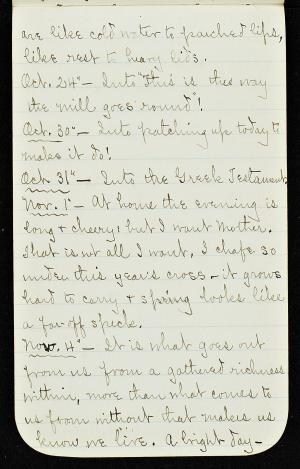 are like cold water to parched lips,
like rest to heavy lids.
Oct. 24" – Into "this is the way
the mill goes round"!
Oct. 30" – Into patching up today to
make it do!
Oct. 31" – Into the Greek Testament.
Nov. 1" – At home the evening is
long & cheery; but I want Mother.
That is not all I want. I chafe so
under this year's cross – it grows
hard to carry & spring looks like
a far off speck.
Nov. 4" – It is what goes out
from us from a gathered richness
within, more than what comes to
us from without that makes us
know we live. A bright day –